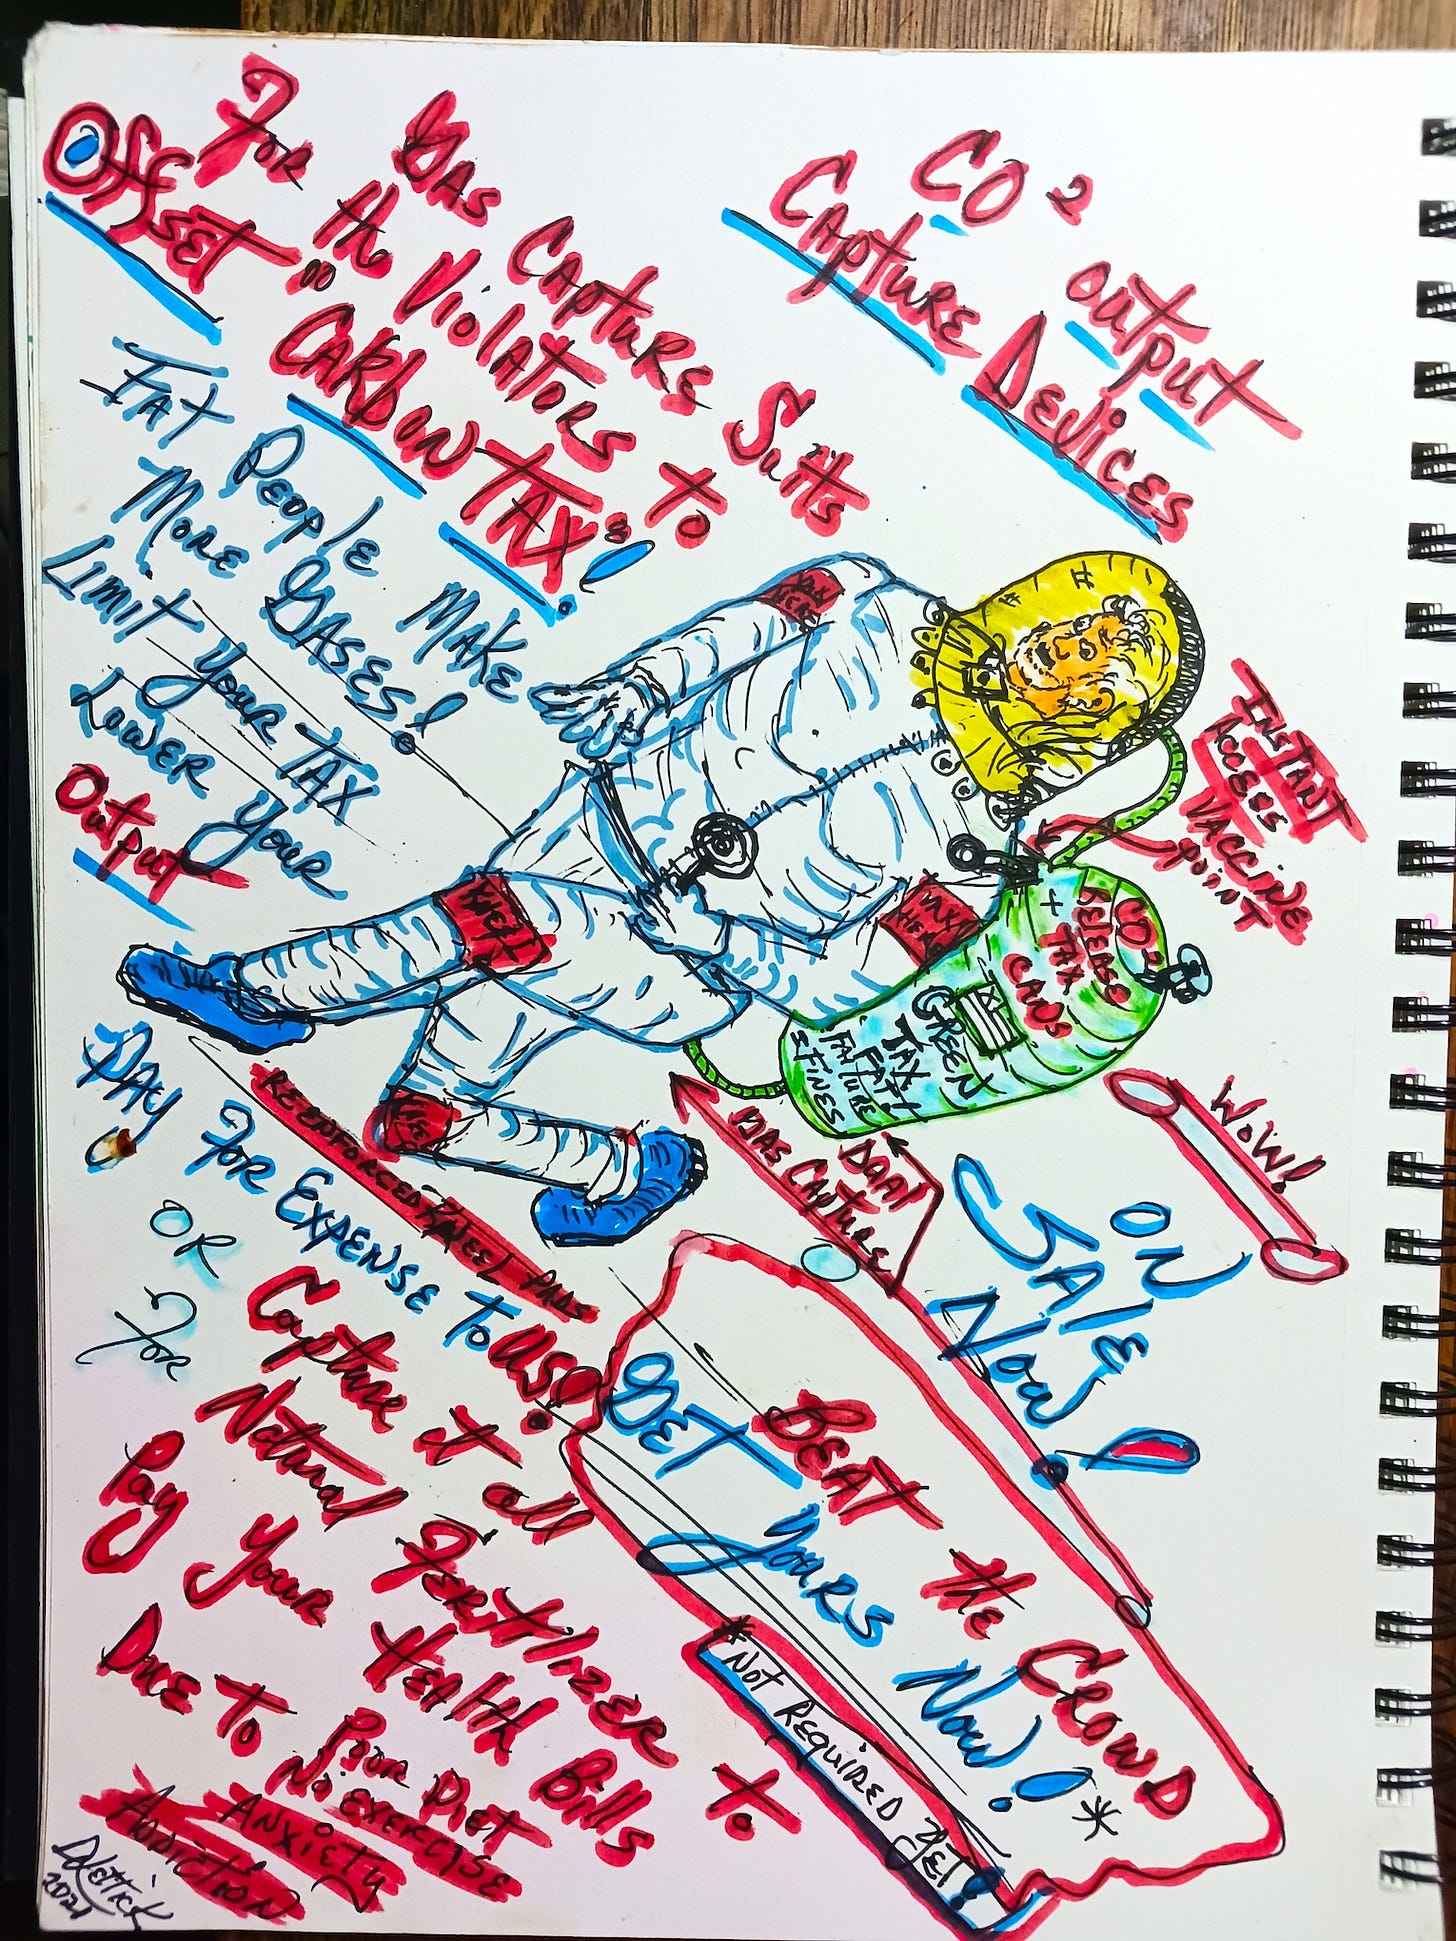 CO2 output
Capture Devices
Gas Capture Suits
For the Violators to
Offset "CARbon TAX"!
FAT PEOPlE MAKE
MORE GASES!
LIMIT YOUR TAX
LOWER YOUR
Output
INSTANT
ACCESS
VACCINE
POINT
VAX
HERE
VAX
HERE
KNEEL
CO2
RElEASE
+ TAX
CARDS
GREEN
TAX
FAT!
FATURE
STINES
WOW!
GAS CAPTURE
REENFORCED KNEEL PADS
ON
SAlE
NOW!
PAY FOR EXPENSE TO US!
OR
FOR
Capture it all
Natural FERtIlIZER to
Pay Your HEAlth Bills
DUE TO POOR DIET
NO EXERCISE
ANXIETY
ADDICTION
BEAT the CROWD
GET YOURS NOW! *
*NOT REQUIRED YET!
DKettick
2021